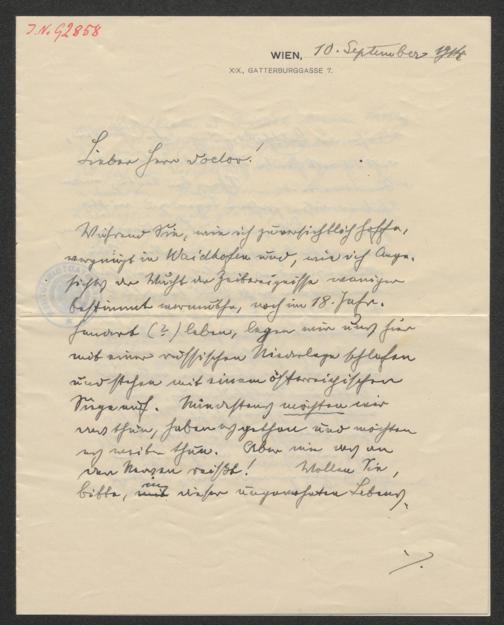 J.N. 92858
WIEN, 10. September 1914
XIX., GATTERBURGGASSE 7.
Lieber Herr Doctor!
Während Sie, wie ich zuversichtlich hoffe,
vergnügt in Waidhofen und, wie ich Ange-
sichts der Wucht der Zeitereignisse weniger
bestimmt vermuthe, noch im 18. Jahr-
hundert (?) leben, legen wir uns hier
mit einer russischen Niederlage schlafen
und stehen mit einem österreichischen
Siege auf. Mindestens möchten wir
das thun, haben es gethan und möchten
es weiter thun. Aber wie das an
den Nerven reißt! Wollen Sie,
bitte, mit dieser ungewohnten Lebens-